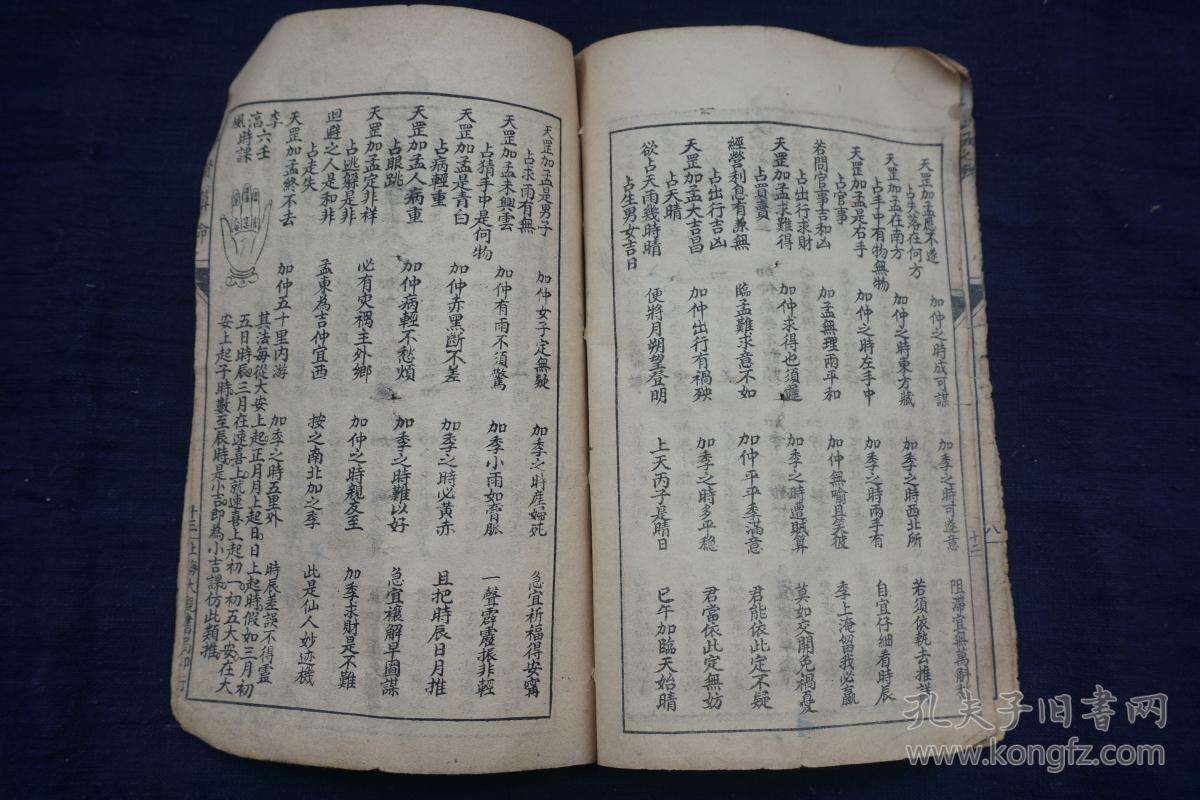 天罡加孟應不遂 加仲之時成可謀 加季之時可遂意 阻滯宜無萬斛
占失落在何方
天罡加孟在南方 加仲之時東方藏 加季之時西北所 若須依執去推詳
占手中有物無物
天罡加孟是右手 加仲之時左手中 加季之時兩手有 自宜仔細看時辰
占官事
若問官事吉和凶 加孟無理兩平和 加仲無喻且笑彼 季上淹留我必贏
占出行求財
天罡加孟求難得 加仲求得也須遲 加季之時遭賊算 莫如交開免禍憂
占買賣
經營利息有兼無 臨孟難求意不如 加仲平平季滿意 君能依此定不疑
占出行吉凶
天罡加孟大吉昌 加仲出行有禍殃 加季之時多平穩 君當依此定無妨
占天晴
欲占天雨幾時晴 便將月朔望登明 上天丙子是晴日 巳午加臨天始晴
占生男女吉日
八
十二
天罡加孟是男子 加仲女子定無疑 加季之時產婦死 急宜祈福得安寧
占求雨有無
天罡加孟未興雲 加仲有雨不須驚 加季小雨如膏脈 一聲霹靂振非輕
占猜手中是何物
天罡加孟是青白 加仲赤黑斷不差 加季之時必黃赤 且把時辰日月推
占病輕重
天罡加孟人病重 加仲病輕不愁煩 加季之時難以好 急宜禳解早圖謀
占眼跳
天罡加孟定非祥 必有災禍主外鄉 加仲之時親友至 加季求財是不難
占逃躲是非
迴避之人是和非 孟東為吉仲宜西 按之南北加之季 此是仙人妙迹機
占走失
天罡加孟終不去 加仲五十里內游 加季之時五里外 時辰差誤不得靈
李淳風六壬時課
其法每從大安上起正月月上起日日上起時假如三月初
五日時辰三月在速喜上就速喜上起初一初五大安在大
安上起子時數至辰時是小吉即為小吉課仿此類推
十三
上海大觀書局印行
孔夫子旧书网
www.kongfz.com